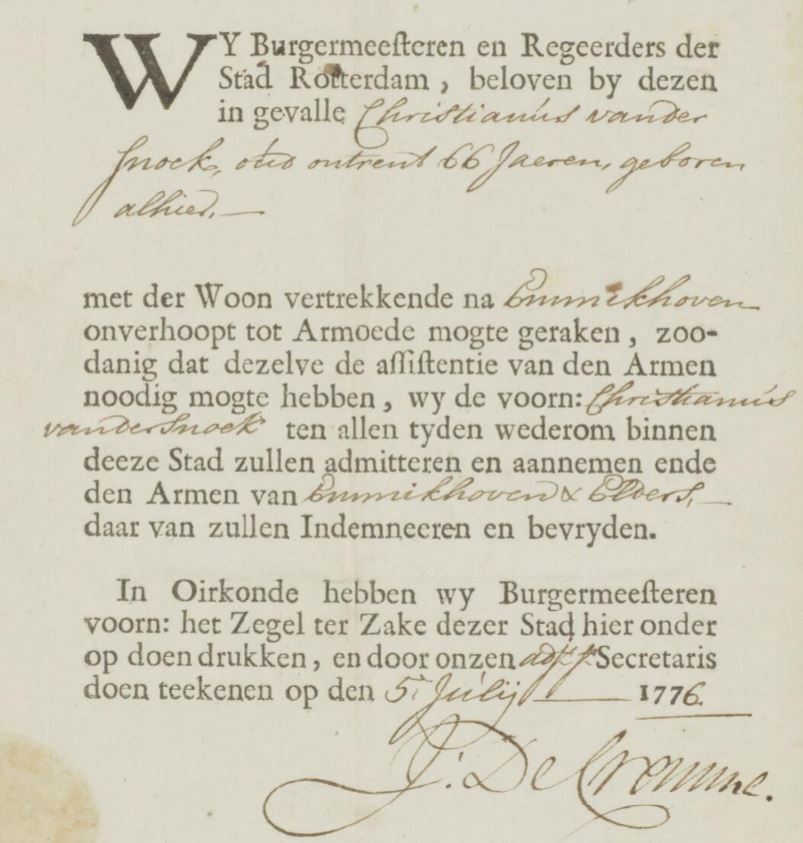 WY Burgermeesteren en Regeerders der
Stad Rotterdam, beloven by dezen
in gevalle Christianús vander
Snoek, oúd ontrent 66 Jaeren, geboren
alhier, —
met der Woon vertrekkende na Emmikhoven
onverhoopt tot Armoede mogte geraken, zoo-
danig dat dezelve de assistentie van den Armen
noodig mogte hebben, wy de voorn: Christianús
vander Snoek ten allen tyden wederom binnen
deeze Stad zullen admitteren en aannemen ende
den Armen van Emmikhoven & Elders, —
daar van zullen Indemneeren en bevryden.
In Oirkonde hebben wy Burgermeesteren
voorn: het Zegel ter Zake dezer Stad hier onder
op doen drukken, en door onzen Secretaris
doen teekenen op den 5 Júlij — 1776.
J. De Cromme.